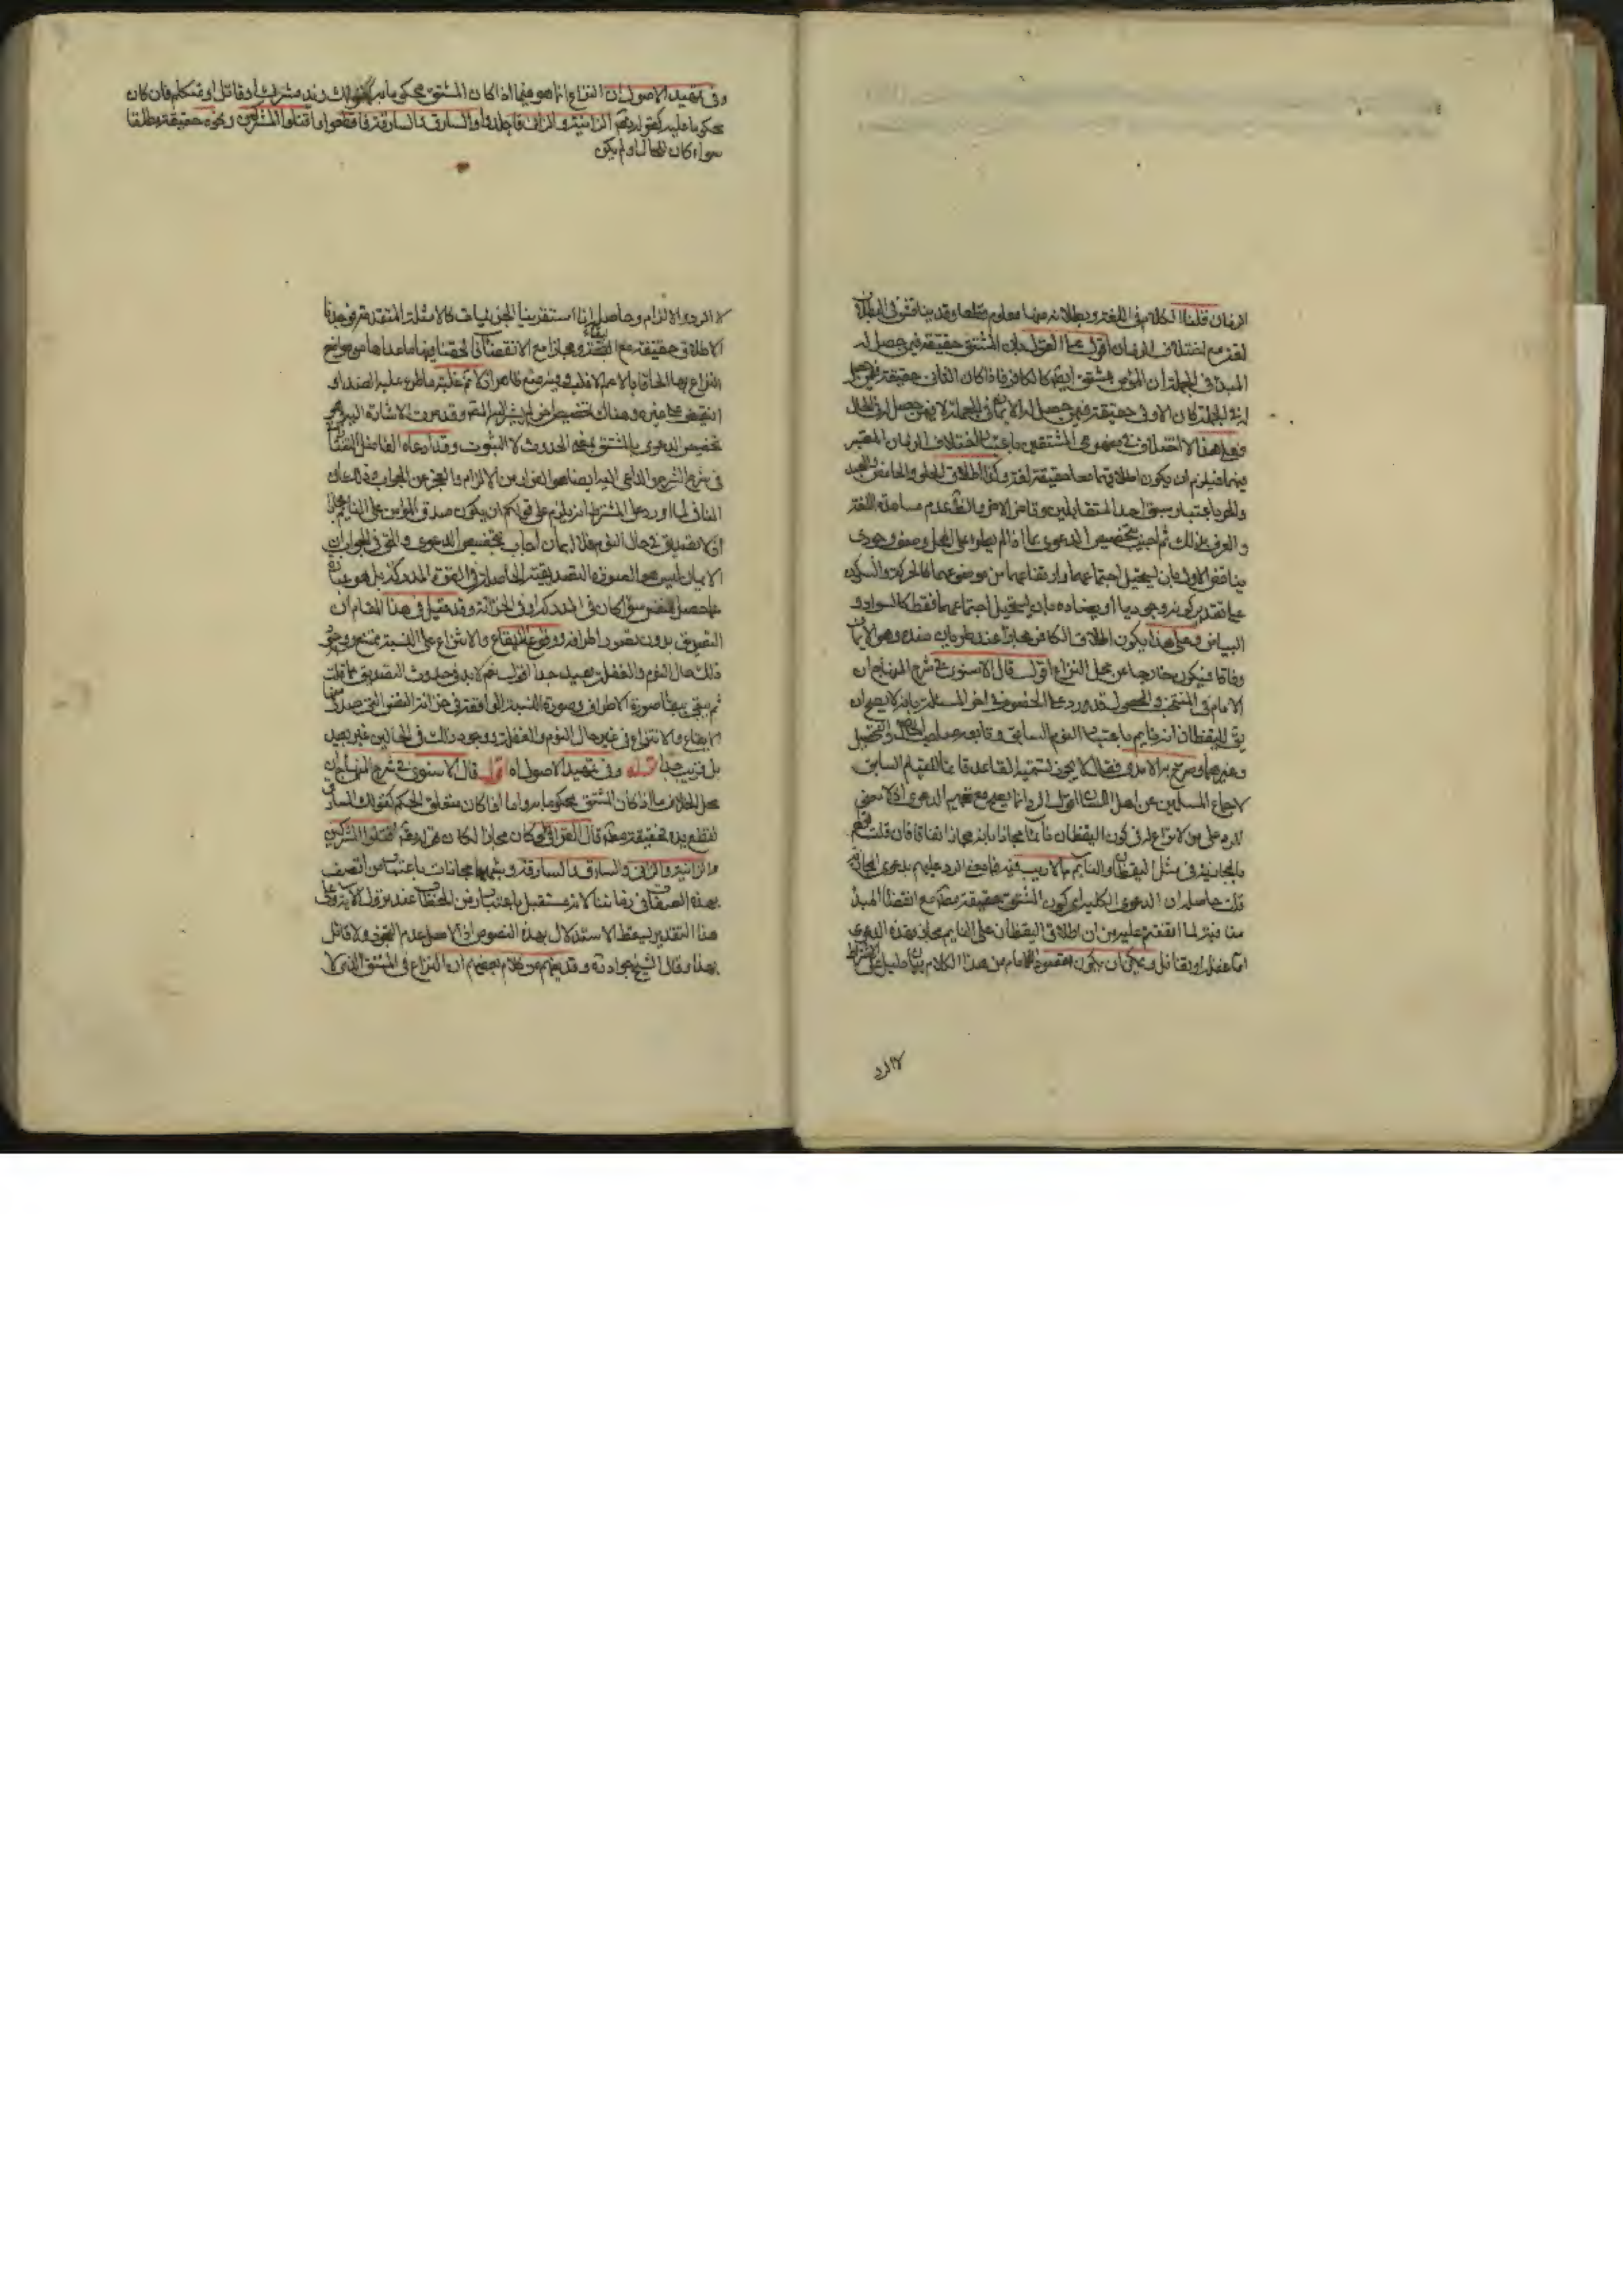 الزمان قلنا الكلام في اللغة وبطلانه منها معلوم قطعا وقد يناقش في البطلان
لغة مع اختلاف الزمان اقول على القول بان المشتق حقيقة فيمن حصل له
المبدأ في الجملة ان المؤمن مشتق ايضا كالكافر فاذا كان الثاني حقيقة فيمن حصل
له في الجملة كان الاول حقيقة فيمن حصل له الايمان في الجملة لا فيمن حصل له في الحال
فعلى هذا لا اختلاف في مفهومي المشتقين باعتبار اختلاف الزمان المعتبر
فيهما فيلزم ان يكون اطلاقهما معا حقيقة لغة وكذا اطلاق الحلو والحامض والعبد
والحر باعتبار سبق احد المتقابلين وتاخر الاخر والظ عدم مساعدة اللغة
والعرف على ذلك ثم اجيب بتخصيص الدعوى بما اذا لم يطرا على المحل وصف وجودي
يناقض الاول بان يستحيل اجتماعهما وارتفاعهما من موضوعهما كالحركة والسكون
على تقدير كونه وجوديا او يضاده بان يستحيل اجتماعهما فقط كالسواد و
البياض وعلى هذا يكون اطلاق الكافر مجازا عند طريان ضده وهو الايمان
وفاقا فيكون خارجا عن محل النزاع اقول قال الاسنوي في شرح المنهاج ان
الامام في المنتخب والمحصول قد رد على الخصوم في اخر المسئلة بانه لا يصح ان
يق لليقظان انه نايم باعتبار النوم السابق وتابعه صاحب الحاصل والتحصيل
وغيرهما وصرح به الامدي فقال لا يجوز تسمية القاعد قائما للقيام السابق
لاجماع المسلمين من اهل اللسان اقول الرد انما يصح مع تعميم الدعوى اذ لا معنى
للرد على من لا نزاع له في كون اليقظان نائما مجازا بانه مجاز اتفاقا فان قلت
بالمجازية في مثل اليقظان والنايم مما لا ريب فيه فما معنى الرد عليهم بدعوى المجازية
قلت حاصله ان الدعوى الكلية اي كون المشتق حقيقة مط مع انقضاء المبدأ
منافية لما اتفقتم عليه من ان اطلاق اليقظان على النايم مجاز بهذه الدعوى
اما غفلة او تناقل ويمكن ان يكون مقصود الامام من هذا الكلام بيان دليل على الاشتراط
لا الرد
وفي تمهيد الاصول ان النزاع انما هو فيما اذا كان المشتق محكوما به كقولك زيد مشرك او قاتل او متكلم فان كان
محكوما عليه كقوله تعم الزانية والزاني فاجلدوا والسارق والسارقة فاقطعوا واقتلوا المشركين ونحوه حقيقة مطلقا
سواء كان للحال او لم يكن
لا الرد والالزام وحاصله انا استقرينا الجزئيات كالامثلة المتقدمة فوجدنا
الاطلاق حقيقة مع بقائه ومجازا مع الانقضاء فالحقنا بها ما عداها من مواضع
النزاع بها الحاقا بالاعم الاغلب وفيه منع ظاهر اذ لا تم غلبة ما طرء عليه الضد او
النقيض على غيره وهناك تخصيص اخر لم يشر اليه المص وقد مرت الاشارة اليه وهي
تخصيص الدعوى بالمشتق بمعنى الحدوث لا الثبوت وقد ادعاه الفاضل التفتازاني
في شرح الشرح والداعي اليه ايضا هو الفرار من الالزام والعجز عن الجواب وذلك ان
النافي لما اورد على المشترط انه يلزم على قولكم ان يكون صدق المؤمن على النايم مجازا
اذ لا تصديق في حال النوم فلا ايمان اجاب بتخصيص الدعوى والحق في الجواب ان
الايمان ليس هو الصورة التصديقية الحاصلة في القوة المدركة بل هو عبارة
عما حصل للنفس سواء كان في المدركة او في الخزانة وقد قيل في هذا المقام ان
التصديق بدون تصور اطرافه ووقوع الايقاع والانتزاع على النسبة ممتنع ووجود
ذلك حال النوم والغفلة بعيد جدا اقول نعم لابد في حدوث التصديق مما قلت
ثم يبقى ببقاء صورة الاطراف وصورة النسبة الواقعة في خزانة النفس التي صدر منها
الايقاع والانتزاع في غير حال النوم والغفلة ووجود ذلك في الحالين غير بعيد
بل قريب جدا قوله وفي تمهيد الاصول اه اقول قال الاسنوي في شرح المنهاج ان
محل الخلاف ما اذا كان المشتق محكوما به واما اذا كان متعلق الحكم كقولك السارق
تقطع يده فحقيقة مط قال القرافي لو كان مجازا لكان قوله تعم اقتلوا المشركين
والزانية والزاني والسارق والسارقة وشبهها مجازات باعتبار من اتصف
بهذه الصفات في زماننا لانه مستقبل باعتبار زمن الخطاب عند نزول الاية وعلى
هذا التقدير يسقط الاستدلال بهذه النصوص اذ الاصل عدم التجوز ولا قائل
بهذا وقال الشيخ جواد ره وقد يفهم من كلام بعضهم ان النزاع في المشتق الذي لا